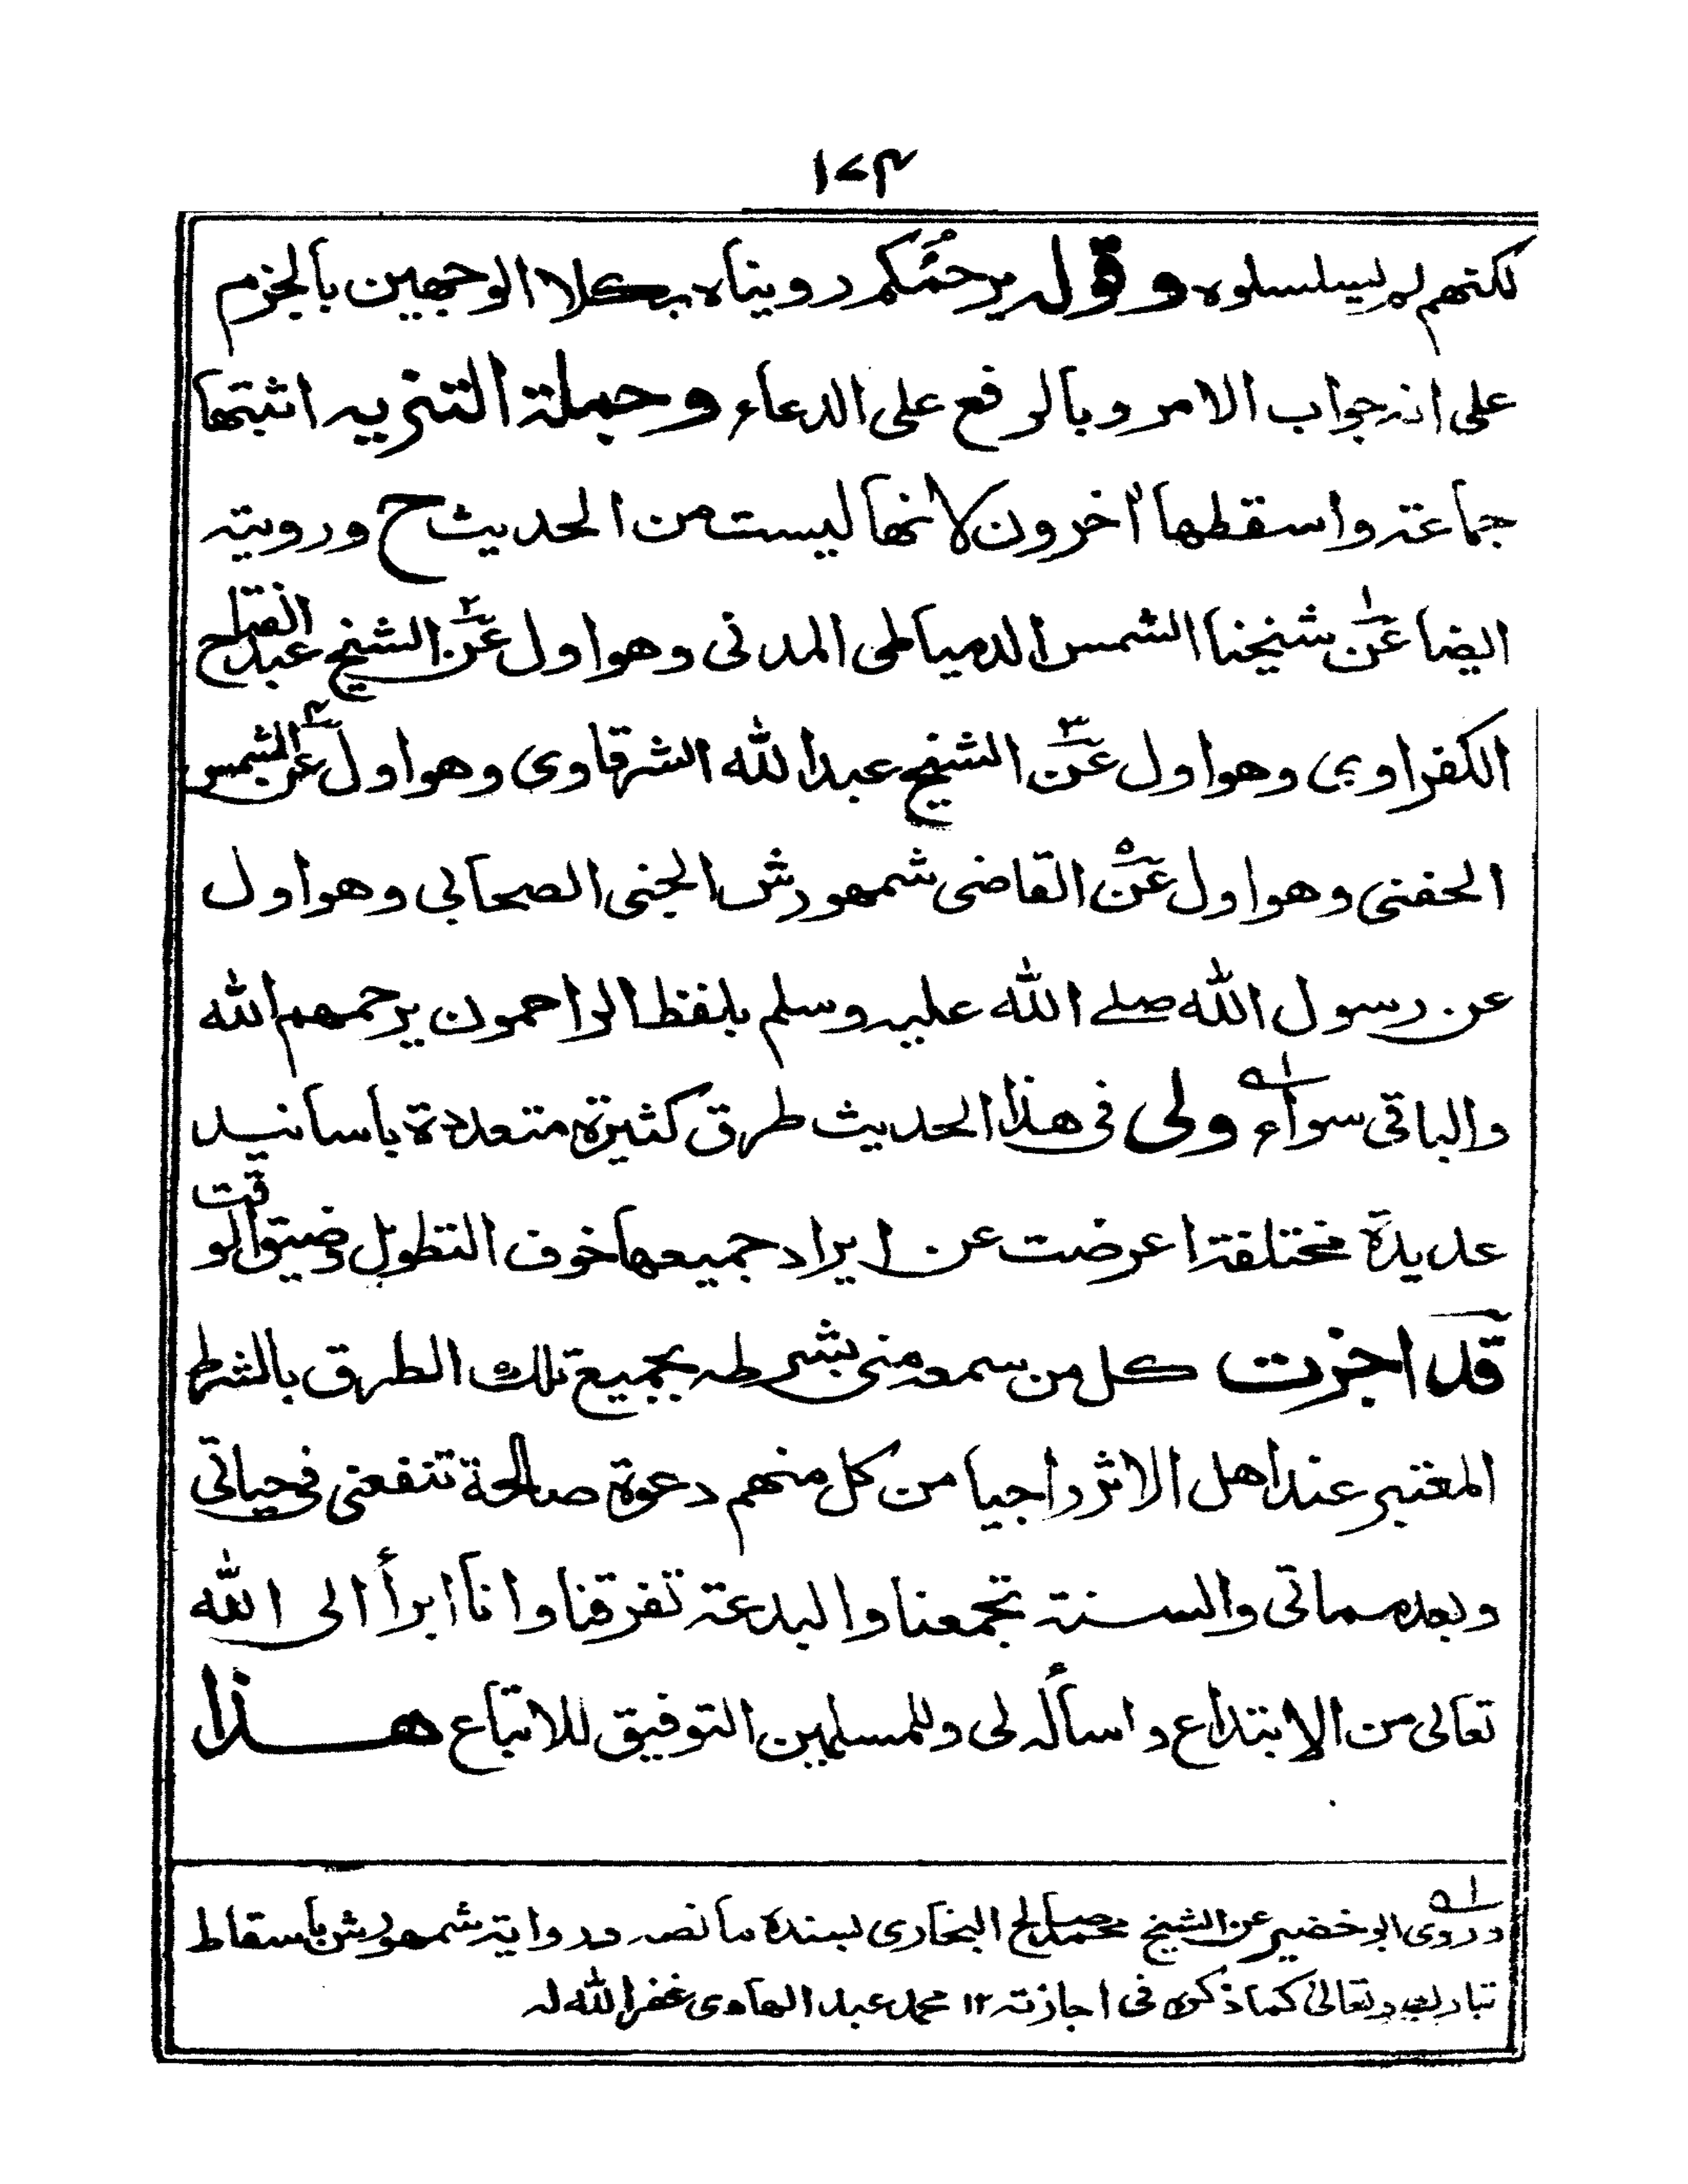 ١٧٣
لكنهم لم يسلسلوه وقوله يرحمُكم رويناه بكلا الوجهين بالجزم
على انه جواب الامر وبالرفع على الدعاء وجملة التنزيه اثبتها
جماعة واسقطها اٰخرون لانها ليست من الحديث ح ورويته
ايضا عن١ شيخنا الشمس الدمياطى المدنى وهو اول عن٢ الشيخ عبد الفتاح
الكفراوي وهو اول عن٣ الشيخ عبد الله الشرقاوى وهو اول عن٤ الشمس
الحفنى وهو اول عن٥ القاضى شمهورش الجنى الصحابي وهو اول
عن رسول الله صلے الله عليه وسلم بلفظ الراحمون يرحمهم الله
والباقى سواء ١ه ولى فى هذا الحديث طرق كثيرة متعددة باسانيد
عديدة مختلفة اعرضت عن ايراد جميعها خوف التطويل وضيق الوقت
قد اجزت كل من سمعه منى بشرطه بجميع تلك الطرق بالشرط
المعتبر عند اهل الاثر راجيا من كل منهم دعوة صالحة تنفعنى فى حياتى
وبعد مماتى والسنة تجمعنا والبدعة تفرقنا وانا ابرأ الى الله
تعالى من الابتداع واسأله لى وللمسلمين التوفيق للاتباع هــذا
١ه وروى ابو خضير عن الشيخ محمد صالح البخارى بسنده ما نصه ورواية شمهورش باسقاط
تبارك وتعالى كما ذكره فى اجازته ١٢ محمد عبد الهادى غفر الله له